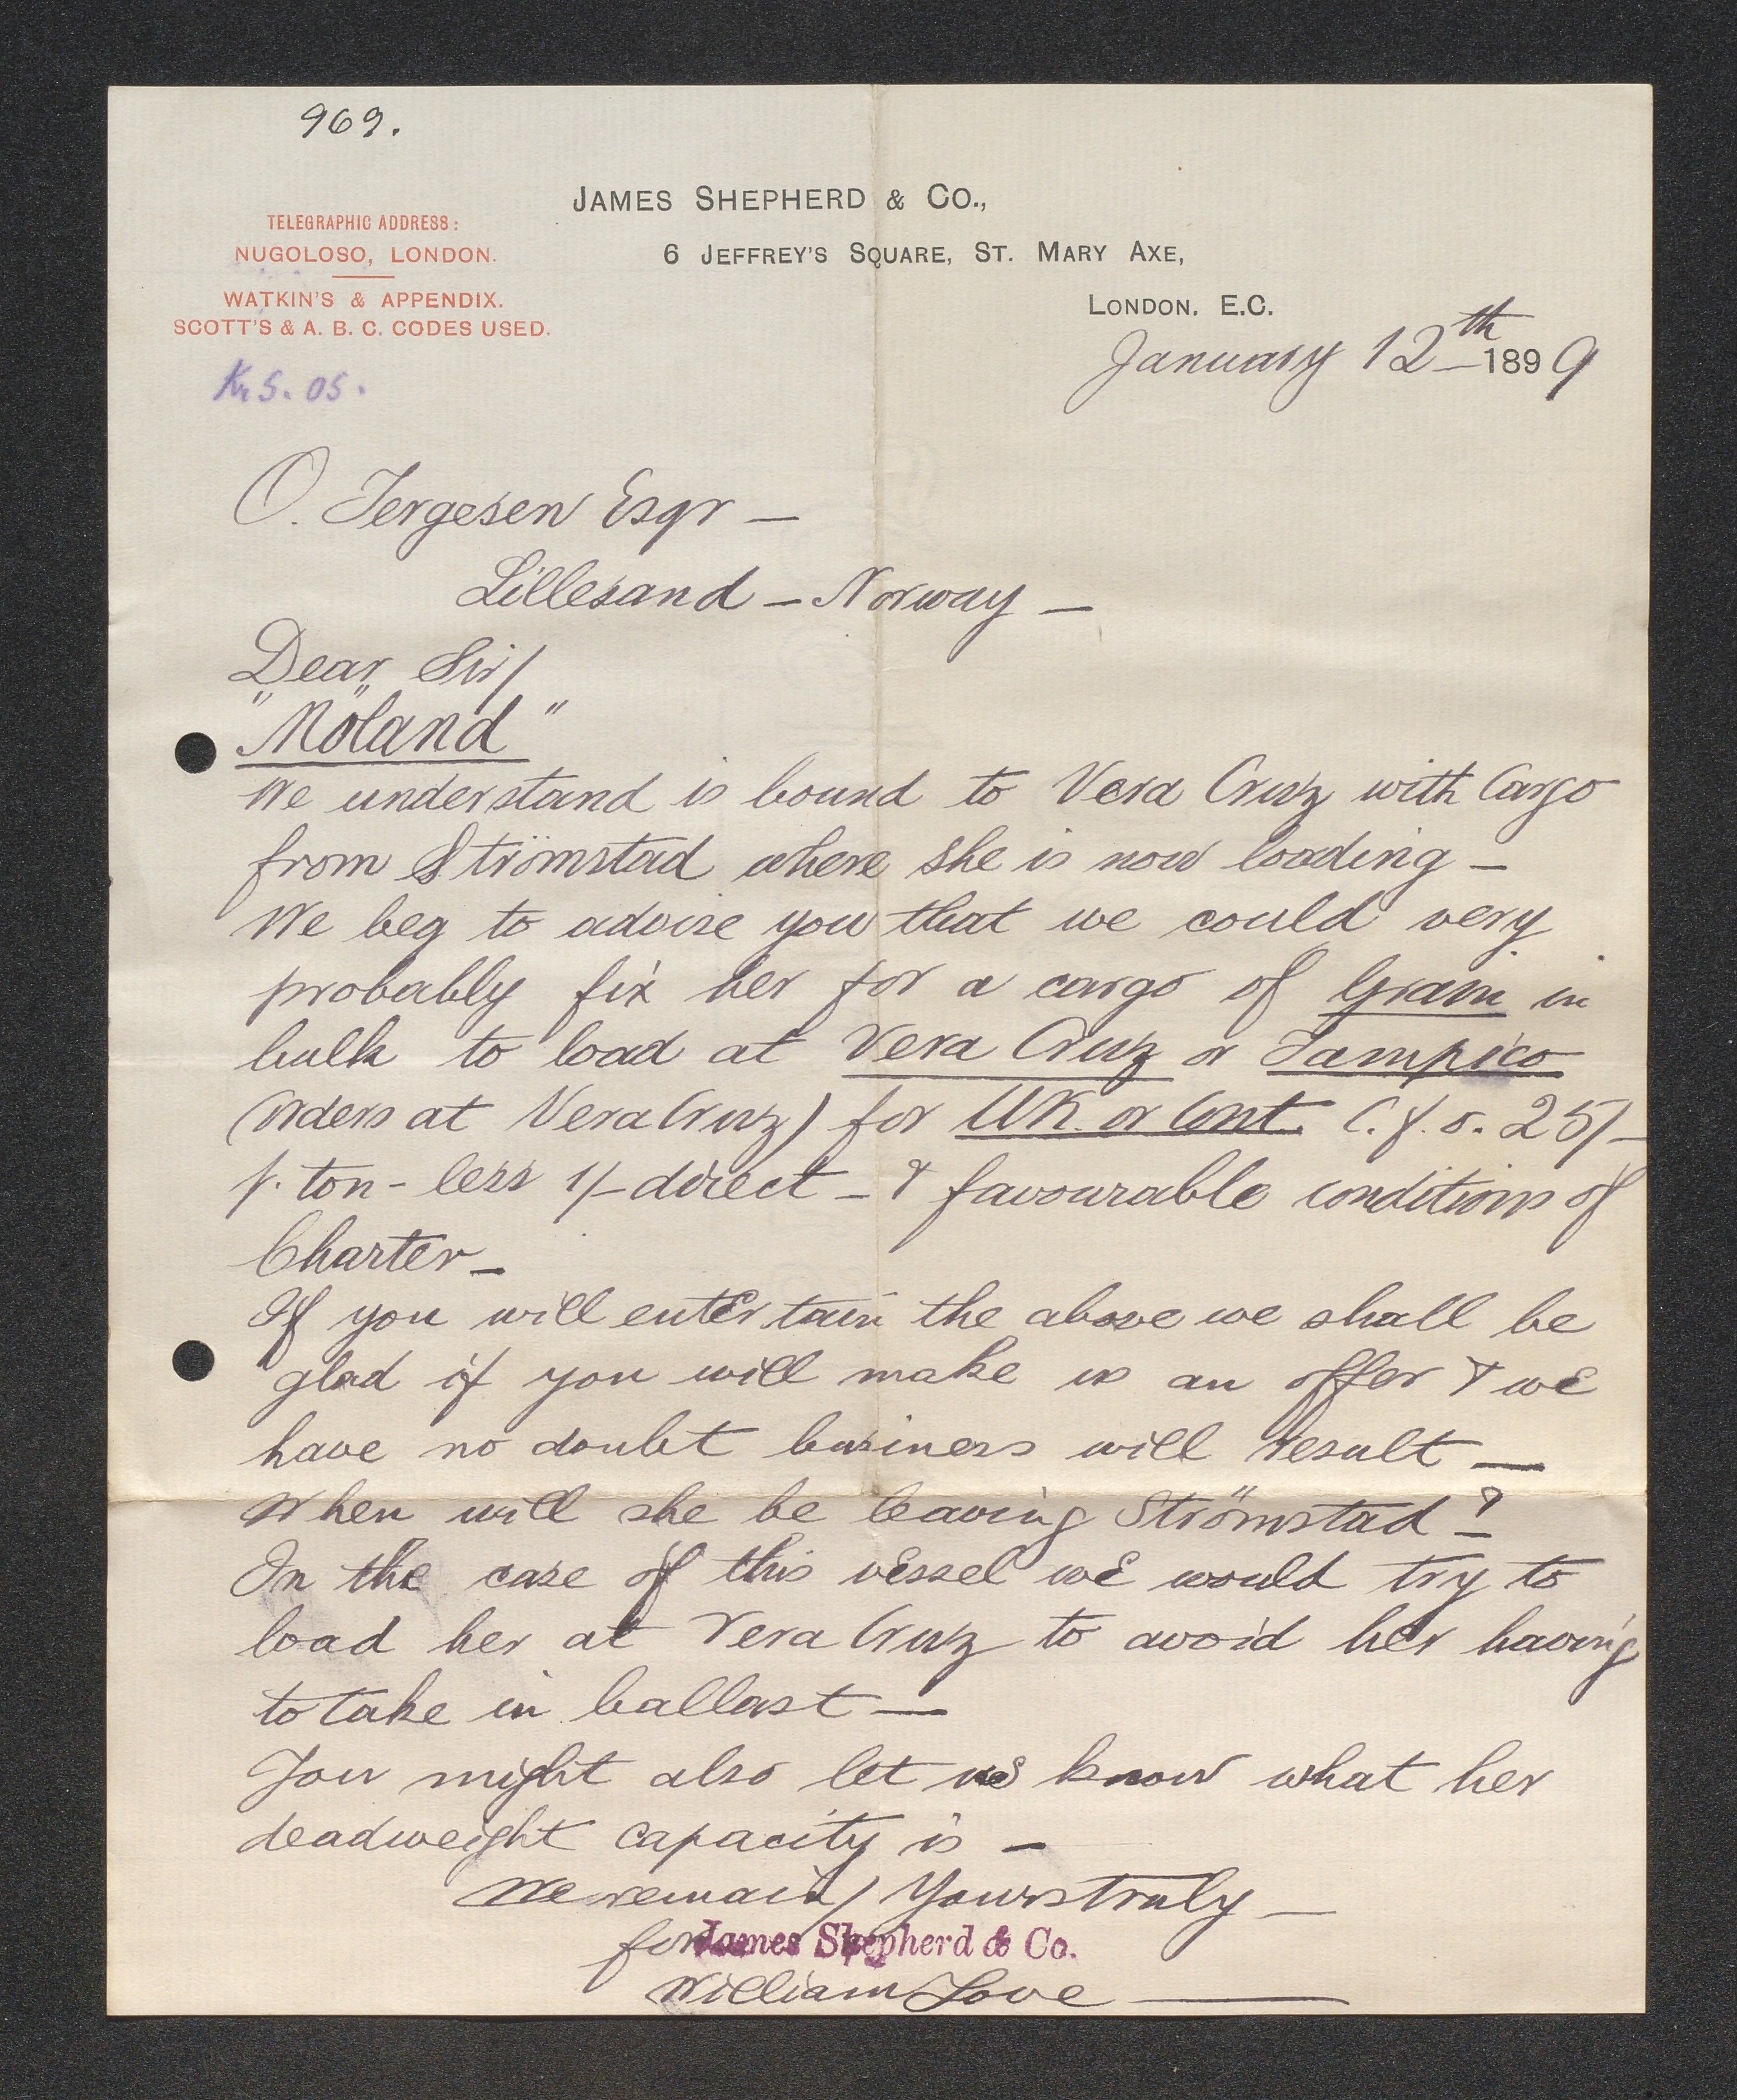 969.
JAMES SHEPHERD & CO.,
TELEGRAPHIC ADDRESS:
NUGOLOSO, LONDON.
6 JEFFREY'S SQUARE, ST. MARY AXE,
WATKIN'S & APPENDIX.
SCOTT'S & A. B. C. CODES USED.
LONDON. E.C.
January 12th 1899
Kr 5. 05.
O. Tergesen Esqr —
Lillesand – Norway —
Dear Sir/
"Möland"
We understand is bound to Vera Cruz with Cargo
from Strömstad where she is now loading –
We beg to advise you that we could very
probably fix her for a cargo of Grain in
bulk to load at Vera Cruz or Tampico
(orders at Vera Cruz) for UK. or Cont. C.f.o. 25/–
p. ton – less 1/– direct – & favourable conditions of
Charter –
If you will entertain the above we shall be
glad if you will make us an offer & we
have no doubt business will result —
When will she be leaving Strömstad?
In the case of this vessel we would try to
load her at Vera Cruz to avoid her having
to take in ballast —
You might also let us know what her
deadweight capacity is –
We remain/ Yours truly —
for James Shepherd & Co.
William Love —